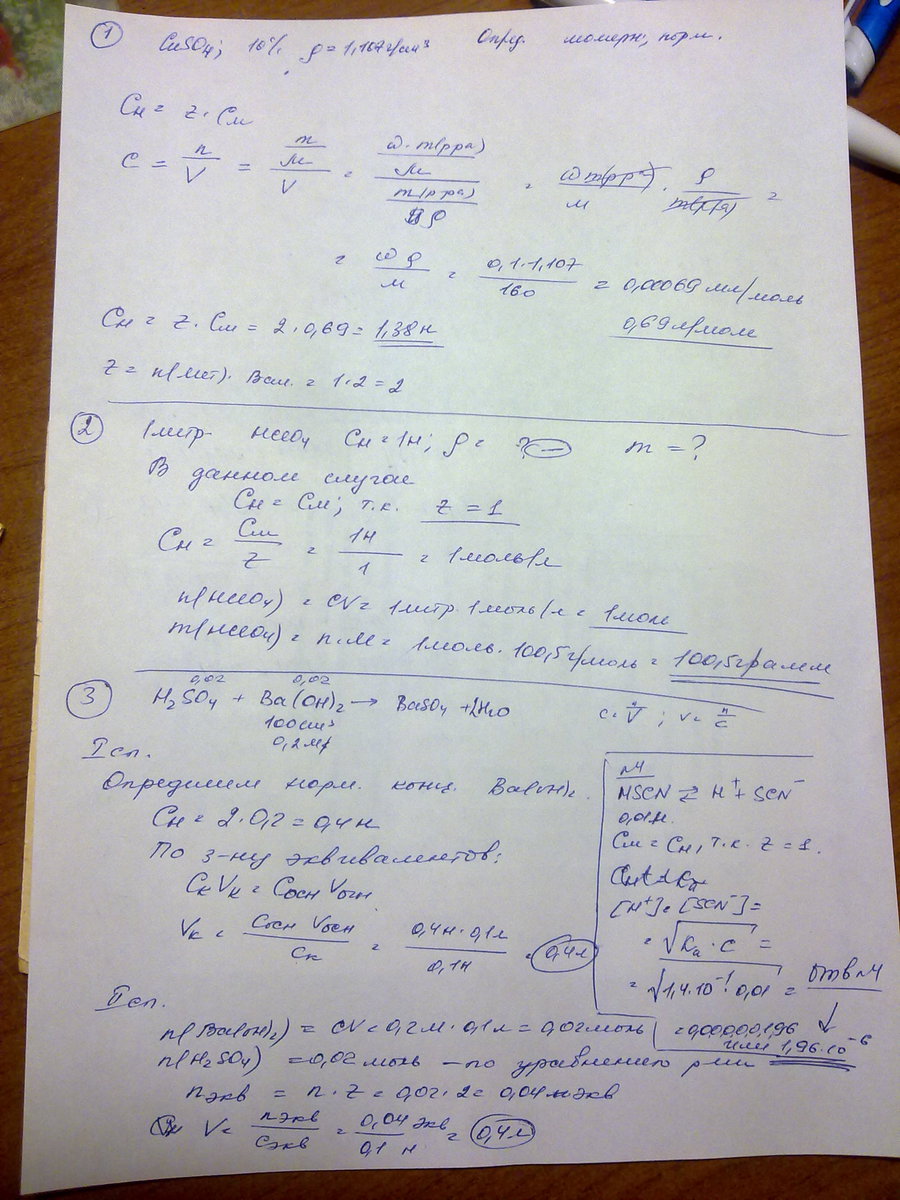 1 CuSO4; 10% ρ = 1,107 г/см³ Опред. молярн, норм.
Cн = z · Cм
C = n/V = (m/M)/V = (ω · m(р-ра)/M)/(m(р-ра)/ρ) = ω m(р-ра)/M · ρ/m(р-ра) =
= ωρ/M = 0,1·1,107/160 = 0,00069 мл/моль
0,69 л/моль
Cн = z · Cм = 2 · 0,69 = 1,38 н
z = n(мет) · Вал. = 1 · 2 = 2
2 1литр HClO4 Cн = 1н; ρ = ? m = ?
В данном случае
Cн = Cм; т.к. z = 1
Cн = Cм/z = 1н/1 = 1 моль/л
n(HClO4) = CV = 1литр · 1моль/л = 1моль
m(HClO4) = n·M = 1моль · 100,5г/моль = 100,5грамм
0,02 0,02
3 H2SO4 + Ba(OH)2 → BaSO4 + 2H2O c = n/V ; V = n/c
100см³
0,2м
I сп.
Определим норм. конц. Ba(OH)2.
Cн = 2 · 0,2 = 0,4 н
По з-ну эквивалентов:
Cк Vк = Cосн Vосн
Vк = Cосн Vосн/Cк = 0,4н · 0,1л/0,1н = 0,4л
№4
HSCN ⇄ H⁺ + SCN⁻
0,01н.
Cм = Cн, т.к. z = 1.
[H⁺] = [SCN⁻] =
= √(Ka · c) =
= √(1,4·10⁻¹ · 0,01 =
Отв №4
= 0,00000196
или 1,96·10⁻⁶
II сп.
n(Ba(OH)2) = CV = 0,2м · 0,1л = 0,02моль
n(H2SO4) = 0,02 моль – по уравнению р-ии
nэкв = n · z = 0,02 · 2 = 0,04 экв
V = nэкв/Cэкв = 0,04 экв/0,1 н = 0,4л